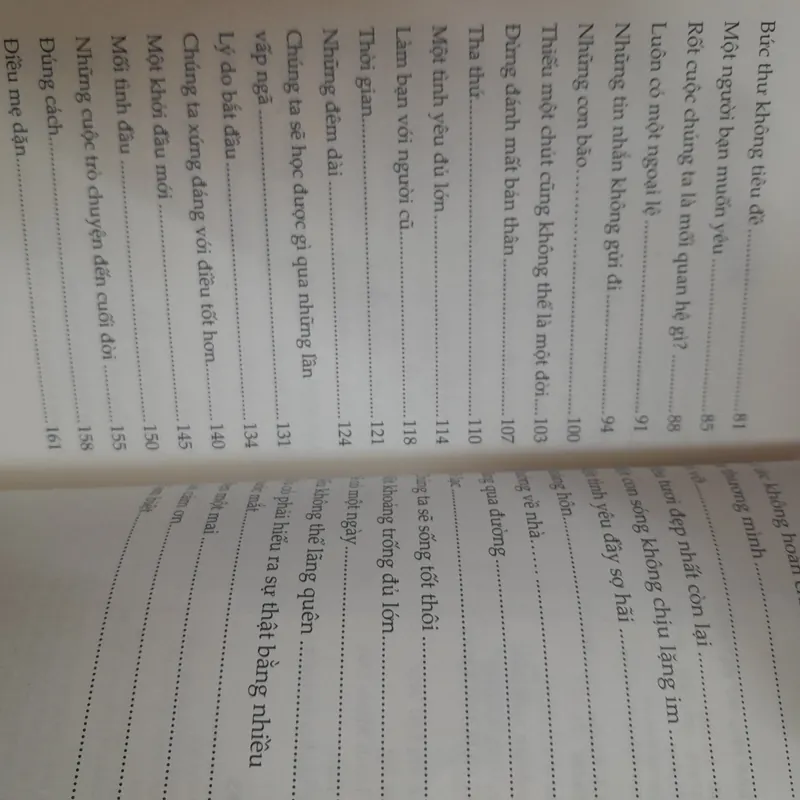 Bức thư không tiêu đề ........ 81
Một người bạn muốn yêu ........ 85
Rốt cuộc chúng ta là mối quan hệ gì? ........ 88
Luôn có một ngoại lệ ........ 91
Những tin nhắn không gửi đi ........ 94
Những cơn bão ........ 100
Thiếu một chút cũng không thể là một đời .... 103
Đừng đánh mất bản thân ........ 107
Tha thứ ........ 110
Một tình yêu đủ lớn ........ 114
Làm bạn với người cũ ........ 118
Thời gian ........ 121
Những đêm dài ........ 124
Chúng ta sẽ học được gì qua những lần
vấp ngã ........ 131
Lý do bắt đầu ........ 134
Chúng ta xứng đáng với điều tốt hơn ........ 140
Một khởi đầu mới ........ 145
Mối tình đầu ........ 150
Những cuộc trò chuyện đến cuối đời ........ 155
Đúng cách ........ 158
Điều mẹ dặn ........ 161
không hoàn
thương mình ........
vỡ ........
tươi đẹp nhất còn lại ........
cơn sóng không chịu lặng im ........
tình yêu đầy sợ hãi ........
hôn ........
về nhà ........
qua đường ........
ta sẽ sống tốt thôi ........
khoảng trống đủ lớn ........
một ngày ........
không thể lãng quên ........
phải hiểu ra sự thật bằng nhiều
mắt ........
một mai ........
cảm ơn ........
biệt ........